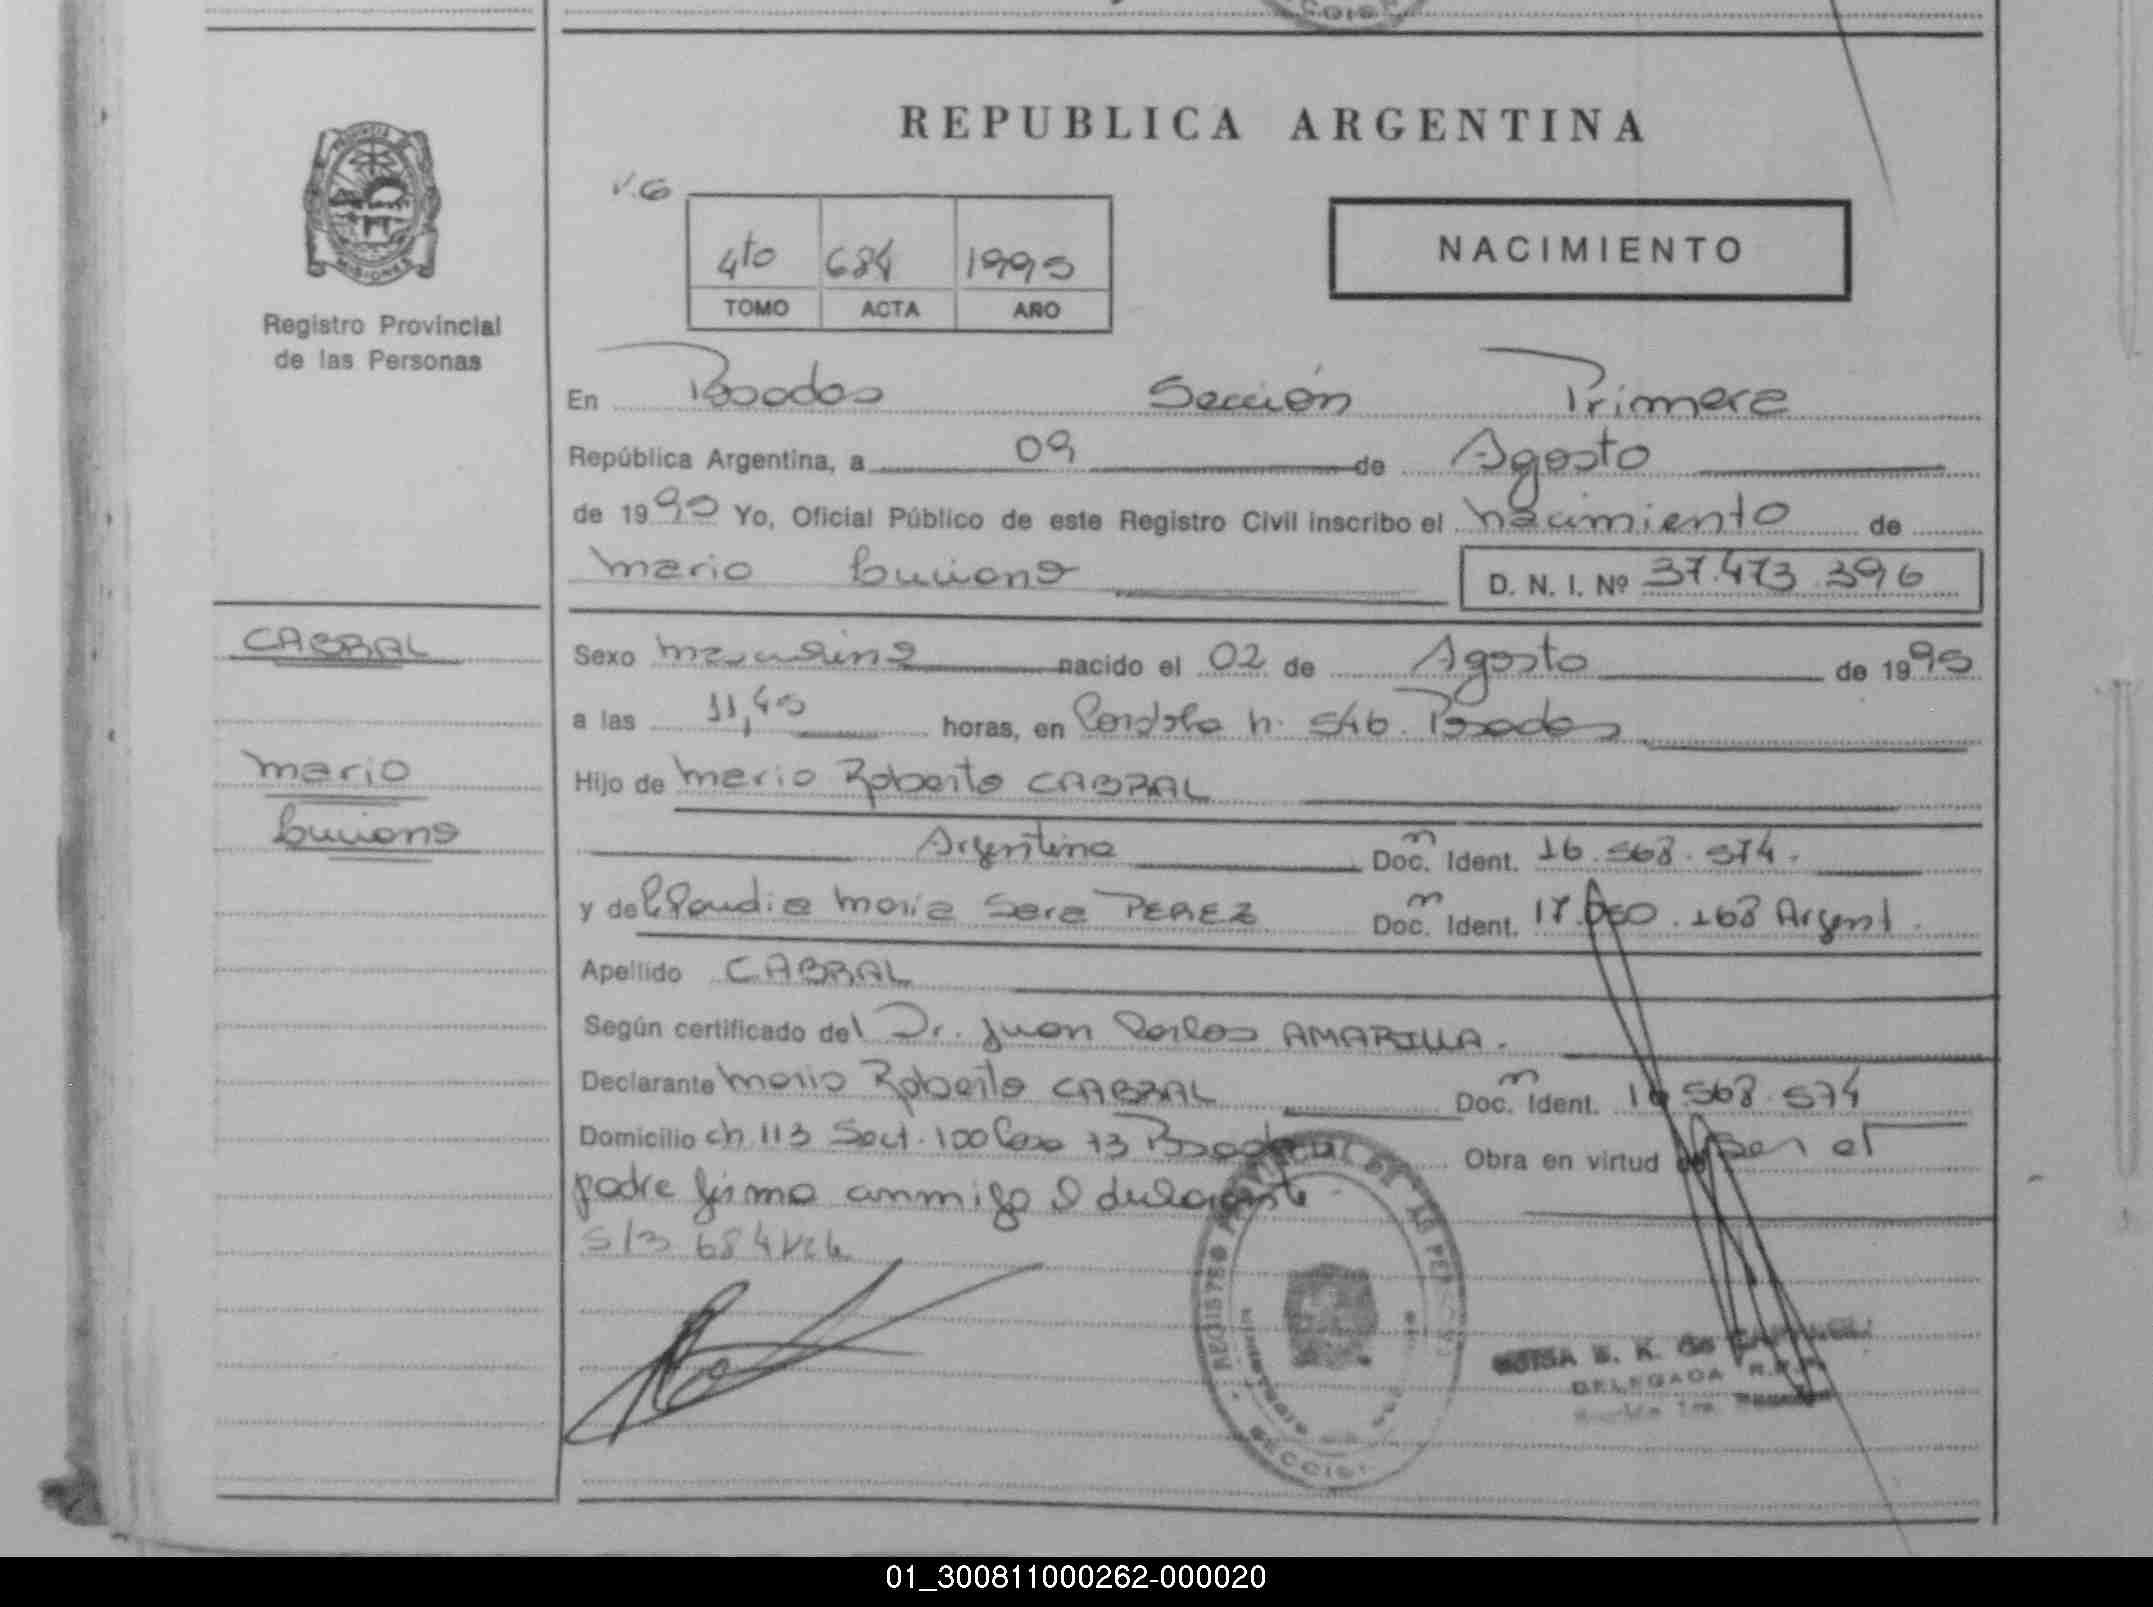 REPUBLICA ARGENTINA
PROVINCIA
MISIONES
Registro Provincial
de las Personas
V.G
4to 684 1995
TOMO ACTA AÑO
NACIMIENTO
En Posadas Sección Primera
República Argentina, a 09 de Agosto
de 1995 Yo, Oficial Público de este Registro Civil inscribo el nacimiento de
Mario Luciano D. N. I. Nº 37.473.396
CABRAL
Mario
Luciano
Sexo masculino nacido el 02 de Agosto de 1995
a las 11,45 horas, en Cordoba n. 546. Posadas
Hijo de Mario Roberto CABRAL
Argentino Doc. Ident. 16.568.574.
y de Claudia Maria Sara PEREZ Doc. Ident. 17. .168 Argent.
Apellido CABRAL
Según certificado del Dr. Juan Carlos AMARILLA.
Declarante Mario Roberto CABRAL Doc. Ident. 16.568.574
Domicilio ch 113 Sect. 100 Casa 73 Posadas Obra en virtud de Ser el
padre firma conmigo el declarante
S/B 684
REGISTRO PROVINCIAL DE LAS PERSONAS
DELEGADA
01_300811000262-000020